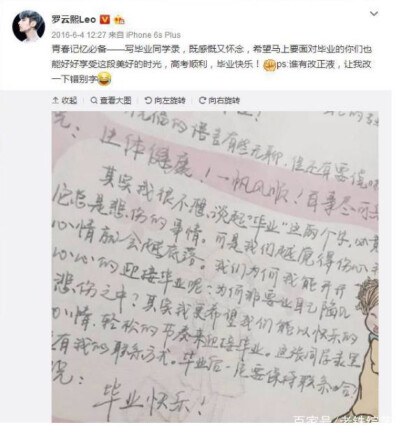 罗云熙Leo
2016-6-4 12:27 来自 iPhone 6s Plus
青春记忆必备——写毕业同学录，既感慨又怀念，希望马上要面对毕业的你们也
能好好享受这段美好的时光，高考顺利，毕业快乐！ps:谁有改正液，让我改
一下错别字
收起 查看大图 向左旋转 向右旋转
的语言有些无聊，但还有要
祝：身体健康！一帆风顺！百事
其实我很不想谈起"毕业"这两个字，
它总是悲伤的事情。可是我们越觉得伤心
心情就会越低落。我们为何不能开开
心心的迎接毕业呢？为何非要让自己陷入
悲伤之中？其实我更希望我们能以快乐的
心情，轻松的节奏来迎接毕业。这张同学录里
有我的联系方式。毕业后一定要保持联系哈！
祝：毕业快乐！
百家号/老铁